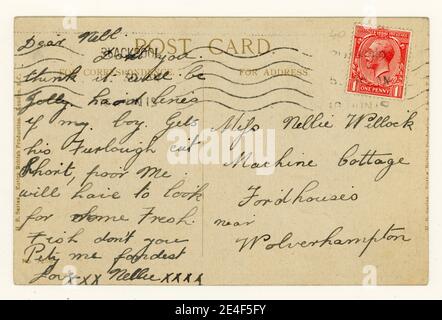 Dear Nell
Don't you
think it will be
Jolly hard lines
if my boy Gets
his Furlough cut
Short, poor Me
will have to look
for some Fresh
Fish don't you
Pity me fondest
Love xxx Nellie xxxx
BLACKPOOL
POST CARD
FOR CORRESPONDENCE
FOR ADDRESS
ONE PENNY
Miss Nellie Willock
Machine Cottage
Fordhouses
near
Wolverhampton
alamy
Image ID: 2E4F5FY
www.alamy.com